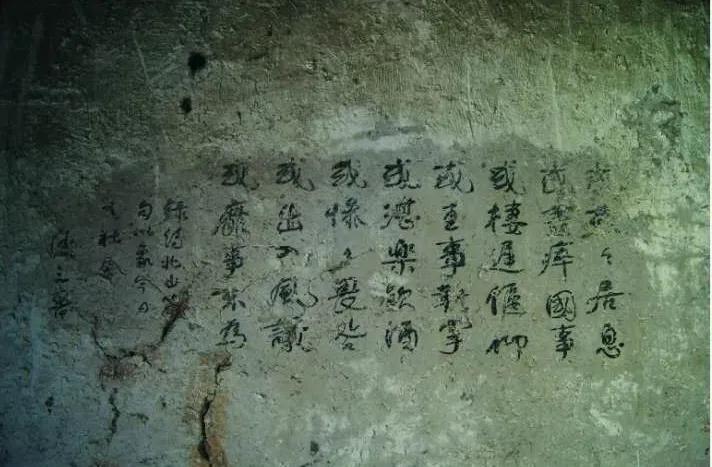 或燕〻居息
或盡瘁國事
或棲遲偃仰
或王事鞅掌
或湛樂飲酒
或慘〻畏咎
或出入風議
或靡事不為
錄詩北山篇
句以象今日
之社會